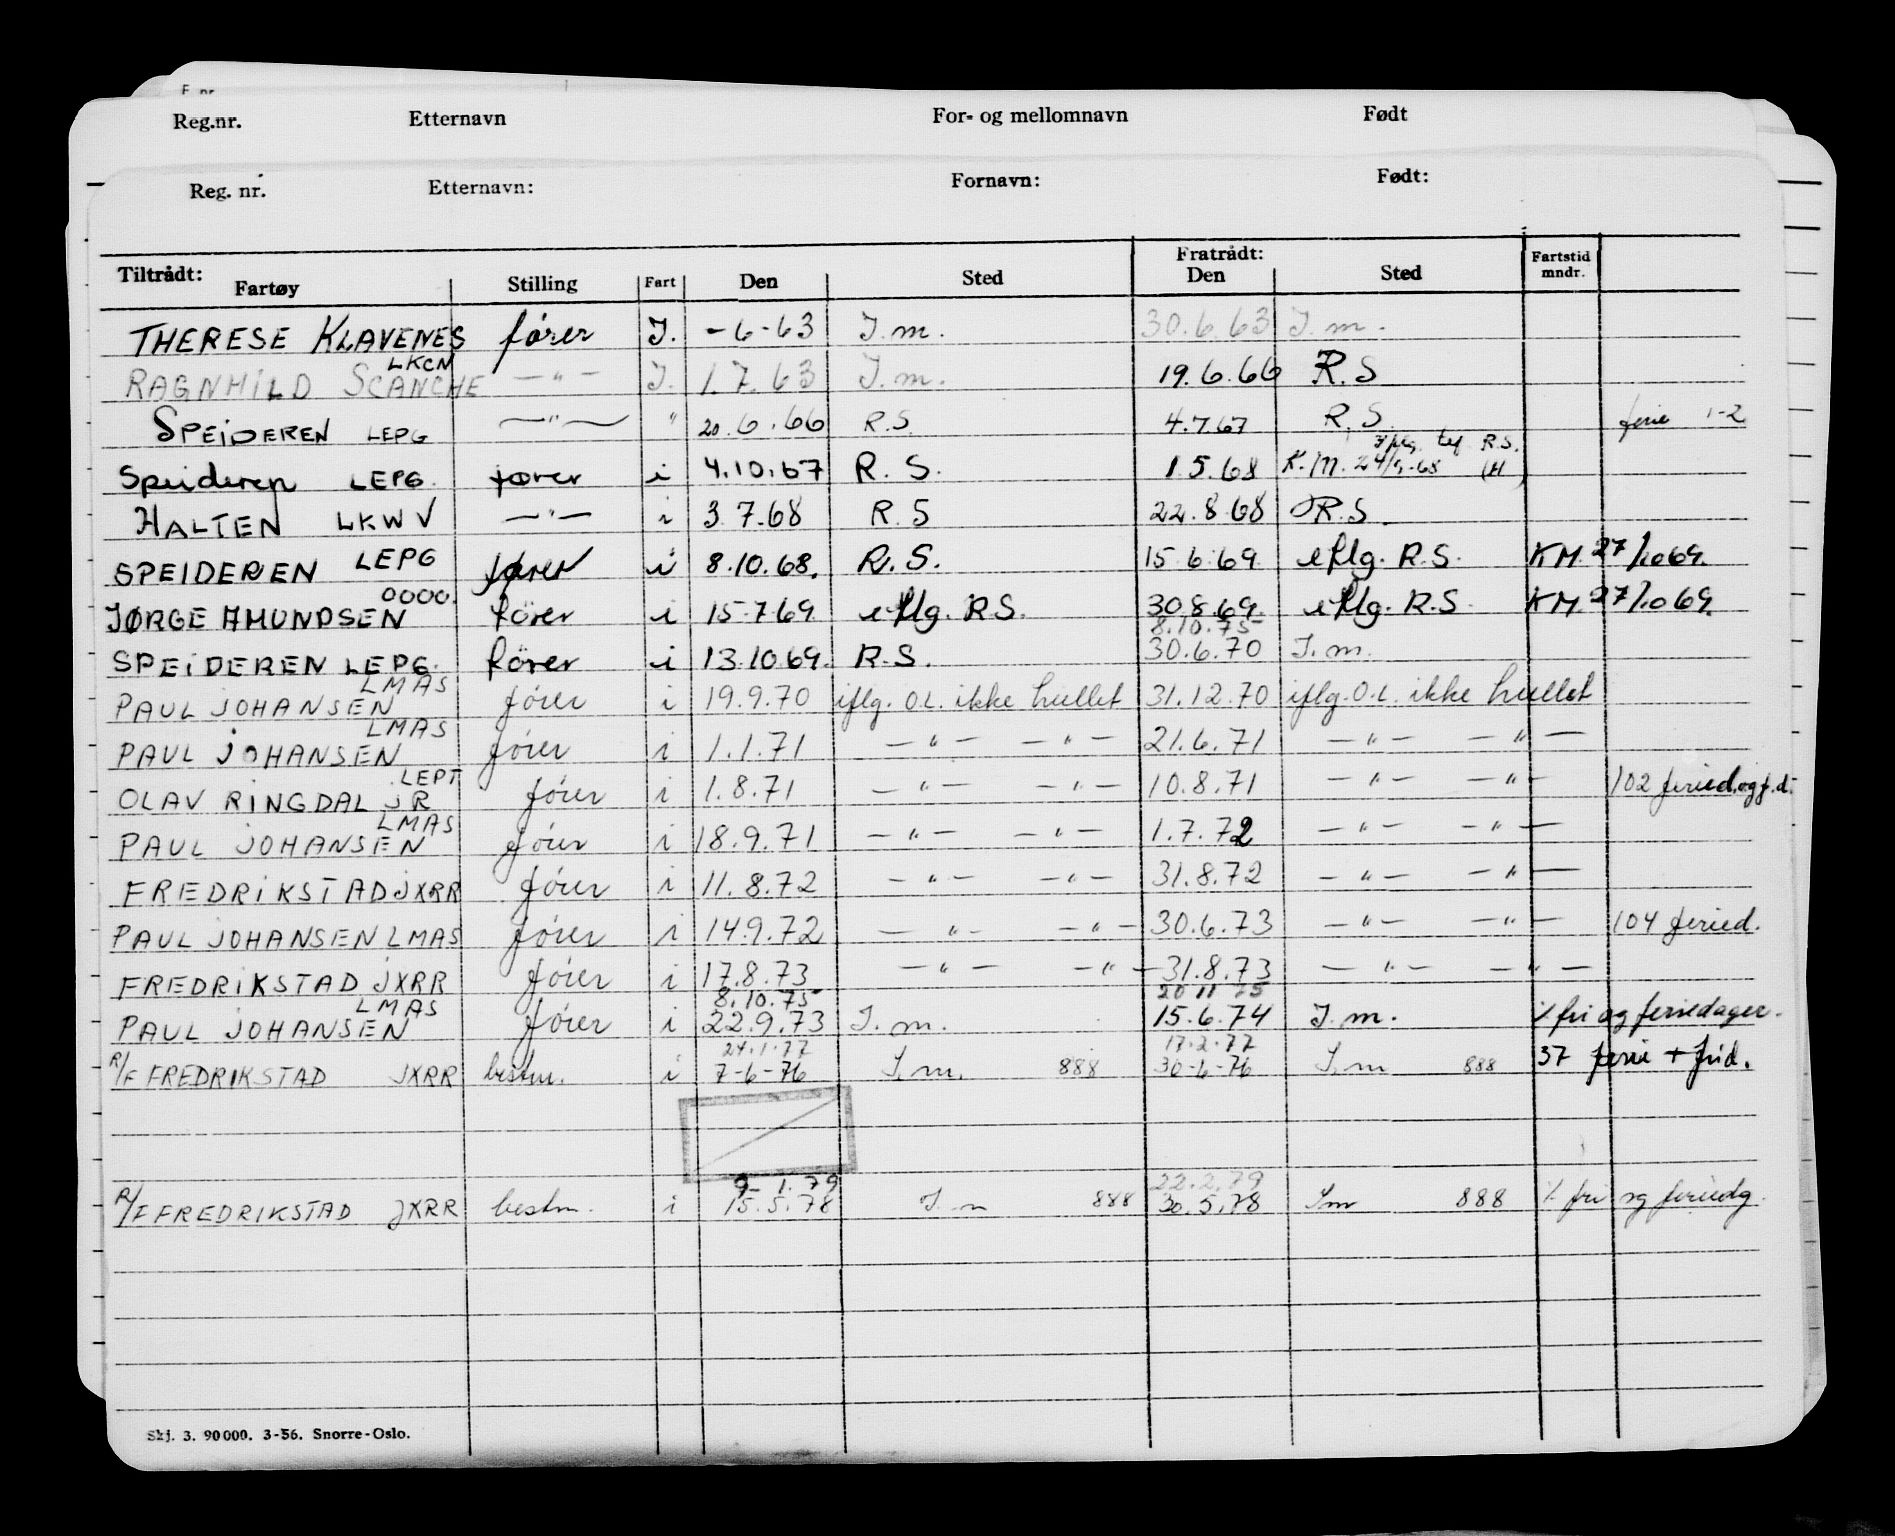 F. nr
Reg.nr. Etternavn For- og mellomnavn Født
Reg. nr. Etternavn: Fornavn: Født:
Tiltrådt: Fratrådt:
Fartøy Stilling Fart Den Sted Den Sted Fartstid mndr.
THERESE KLAVENES fører J. -6-63 J.m. 30.6.63 J.m.
LKCN
RAGNHILD SCANCHE —"— J. 1.7.63 J.m. 19.6.66 R.S
SPEIDEREN LEPG —"— " 20.6.66 R.S. 4.7.67 R.S. ferie 1-2
Iflg. tlf. R.S.
Speideren LEPG. fører i 4.10.67 R.S. 1.5.68 K.M. 24/5-68 (H)
HALTEN LKWV —"— i 3.7.68 R.S 22.8.68 R.S.
SPEIDEREN LEPG fører i 8.10.68. R.S. 15.6.69 iflg. R.S. KM. 27/10 69.
0000.
JØRGE AMUNDSEN fører i 15.7.69. iflg. R.S. 30.8.69. iflg. R.S. KM 27/10 69.
8.10.75
SPEIDEREN LEPG. fører i 13.10.69. R.S. 30.6.70 J.m.
LMAS
PAUL JOHANSEN fører i 19.9.70 iflg. O.L. ikke hullet 31.12.70 iflg. O.L. ikke hullet
LMAS
PAUL JOHANSEN fører i 1.1.71 —"— —"— 21.6.71 —"— —"—
LEPT
OLAV RINGDAL JR fører i 1.8.71 —"— —"— 10.8.71 —"— —"— 102 feried. og f.d.
LMAS
PAUL JOHANSEN fører i 18.9.71 —"— —"— 1.7.72 —"— —"—
FREDRIKSTAD JXRR fører i 11.8.72 —"— —"— 31.8.72 —"— —"—
PAUL JOHANSEN LMAS fører i 14.9.72 —"— —"— 30.6.73 —"— —"— 104 feried.
FREDRIKSTAD JXRR fører i 17.8.73 —"— —"— 31.8.73 —"— —"—
LMAS 8.10.75 20 11 75
PAUL JOHANSEN fører i 22.9.73 J.m. 15.6.74 J.m. % fri og feriedager.
24.1.77 17.2.77
R/F FREDRIKSTAD JXRR bestm. i 7-6-76 J.m. 888 30-6-76 J.m 888 37 ferie + frid.
9-1.79 22.2.79
R/F FREDRIKSTAD JXRR bestm. i 15.5.78 J.m 888 30.5.78 Jm 888 % fri og feriedg.
Skj. 3. 90000. 3-56. Snorre-Oslo.